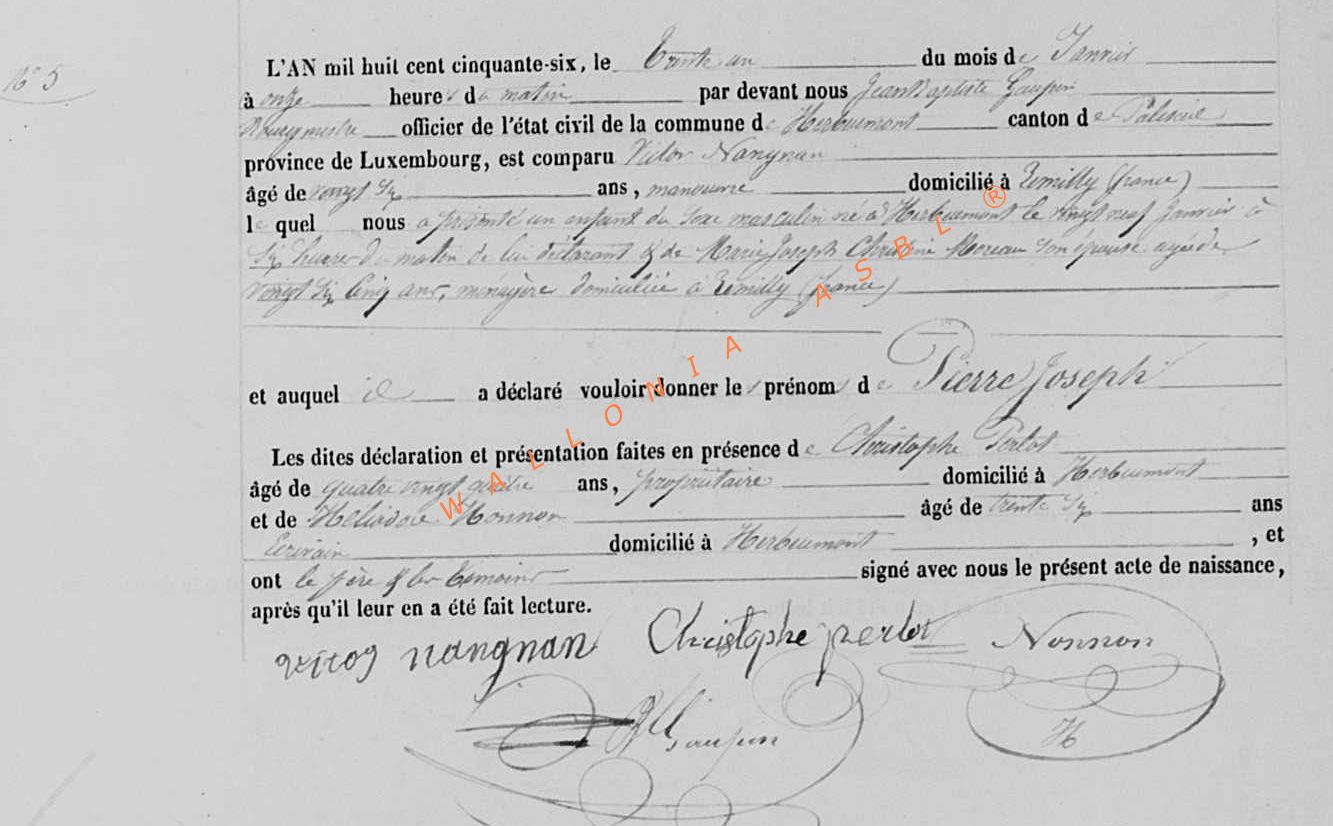 N° 5
L'AN mil huit cent cinquante-six, le Trente un du mois de Janvier
à onze heures du matin par devant nous Jean Baptiste Goupin
Bourgmestre officier de l'état civil de la commune de Herbeumont canton de Paliseul
province de Luxembourg, est comparu Victor Nangnan
âgé de vingt six ans, manœuvre domicilié à Remilly (france)
lequel nous a présenté un enfant du sexe masculin né à Herbeumont le vingt neuf Janvier à
six heures du matin de lui déclarant & de Marie Joseph Christine Moreau son épouse agée de
vingt cinq ans, ménagère domiciliée à Remilly (france)
et auquel il a déclaré vouloir donner les prénoms de Pierre Joseph
Les dites déclaration et présentation faites en présence de Christophe Perlot
âgé de quatre vingt quatre ans, propriétaire domicilié à Herbeumont
et de Héliodore Nonnon âgé de trente six ans
Ecrivain domicilié à Herbeumont, et
ont le père & les témoins signé avec nous le présent acte de naissance,
après qu'il leur en a été fait lecture.
victor nangnan Christophe perlot Nonnon
Goupin
H
WALLONIA ASBL ®